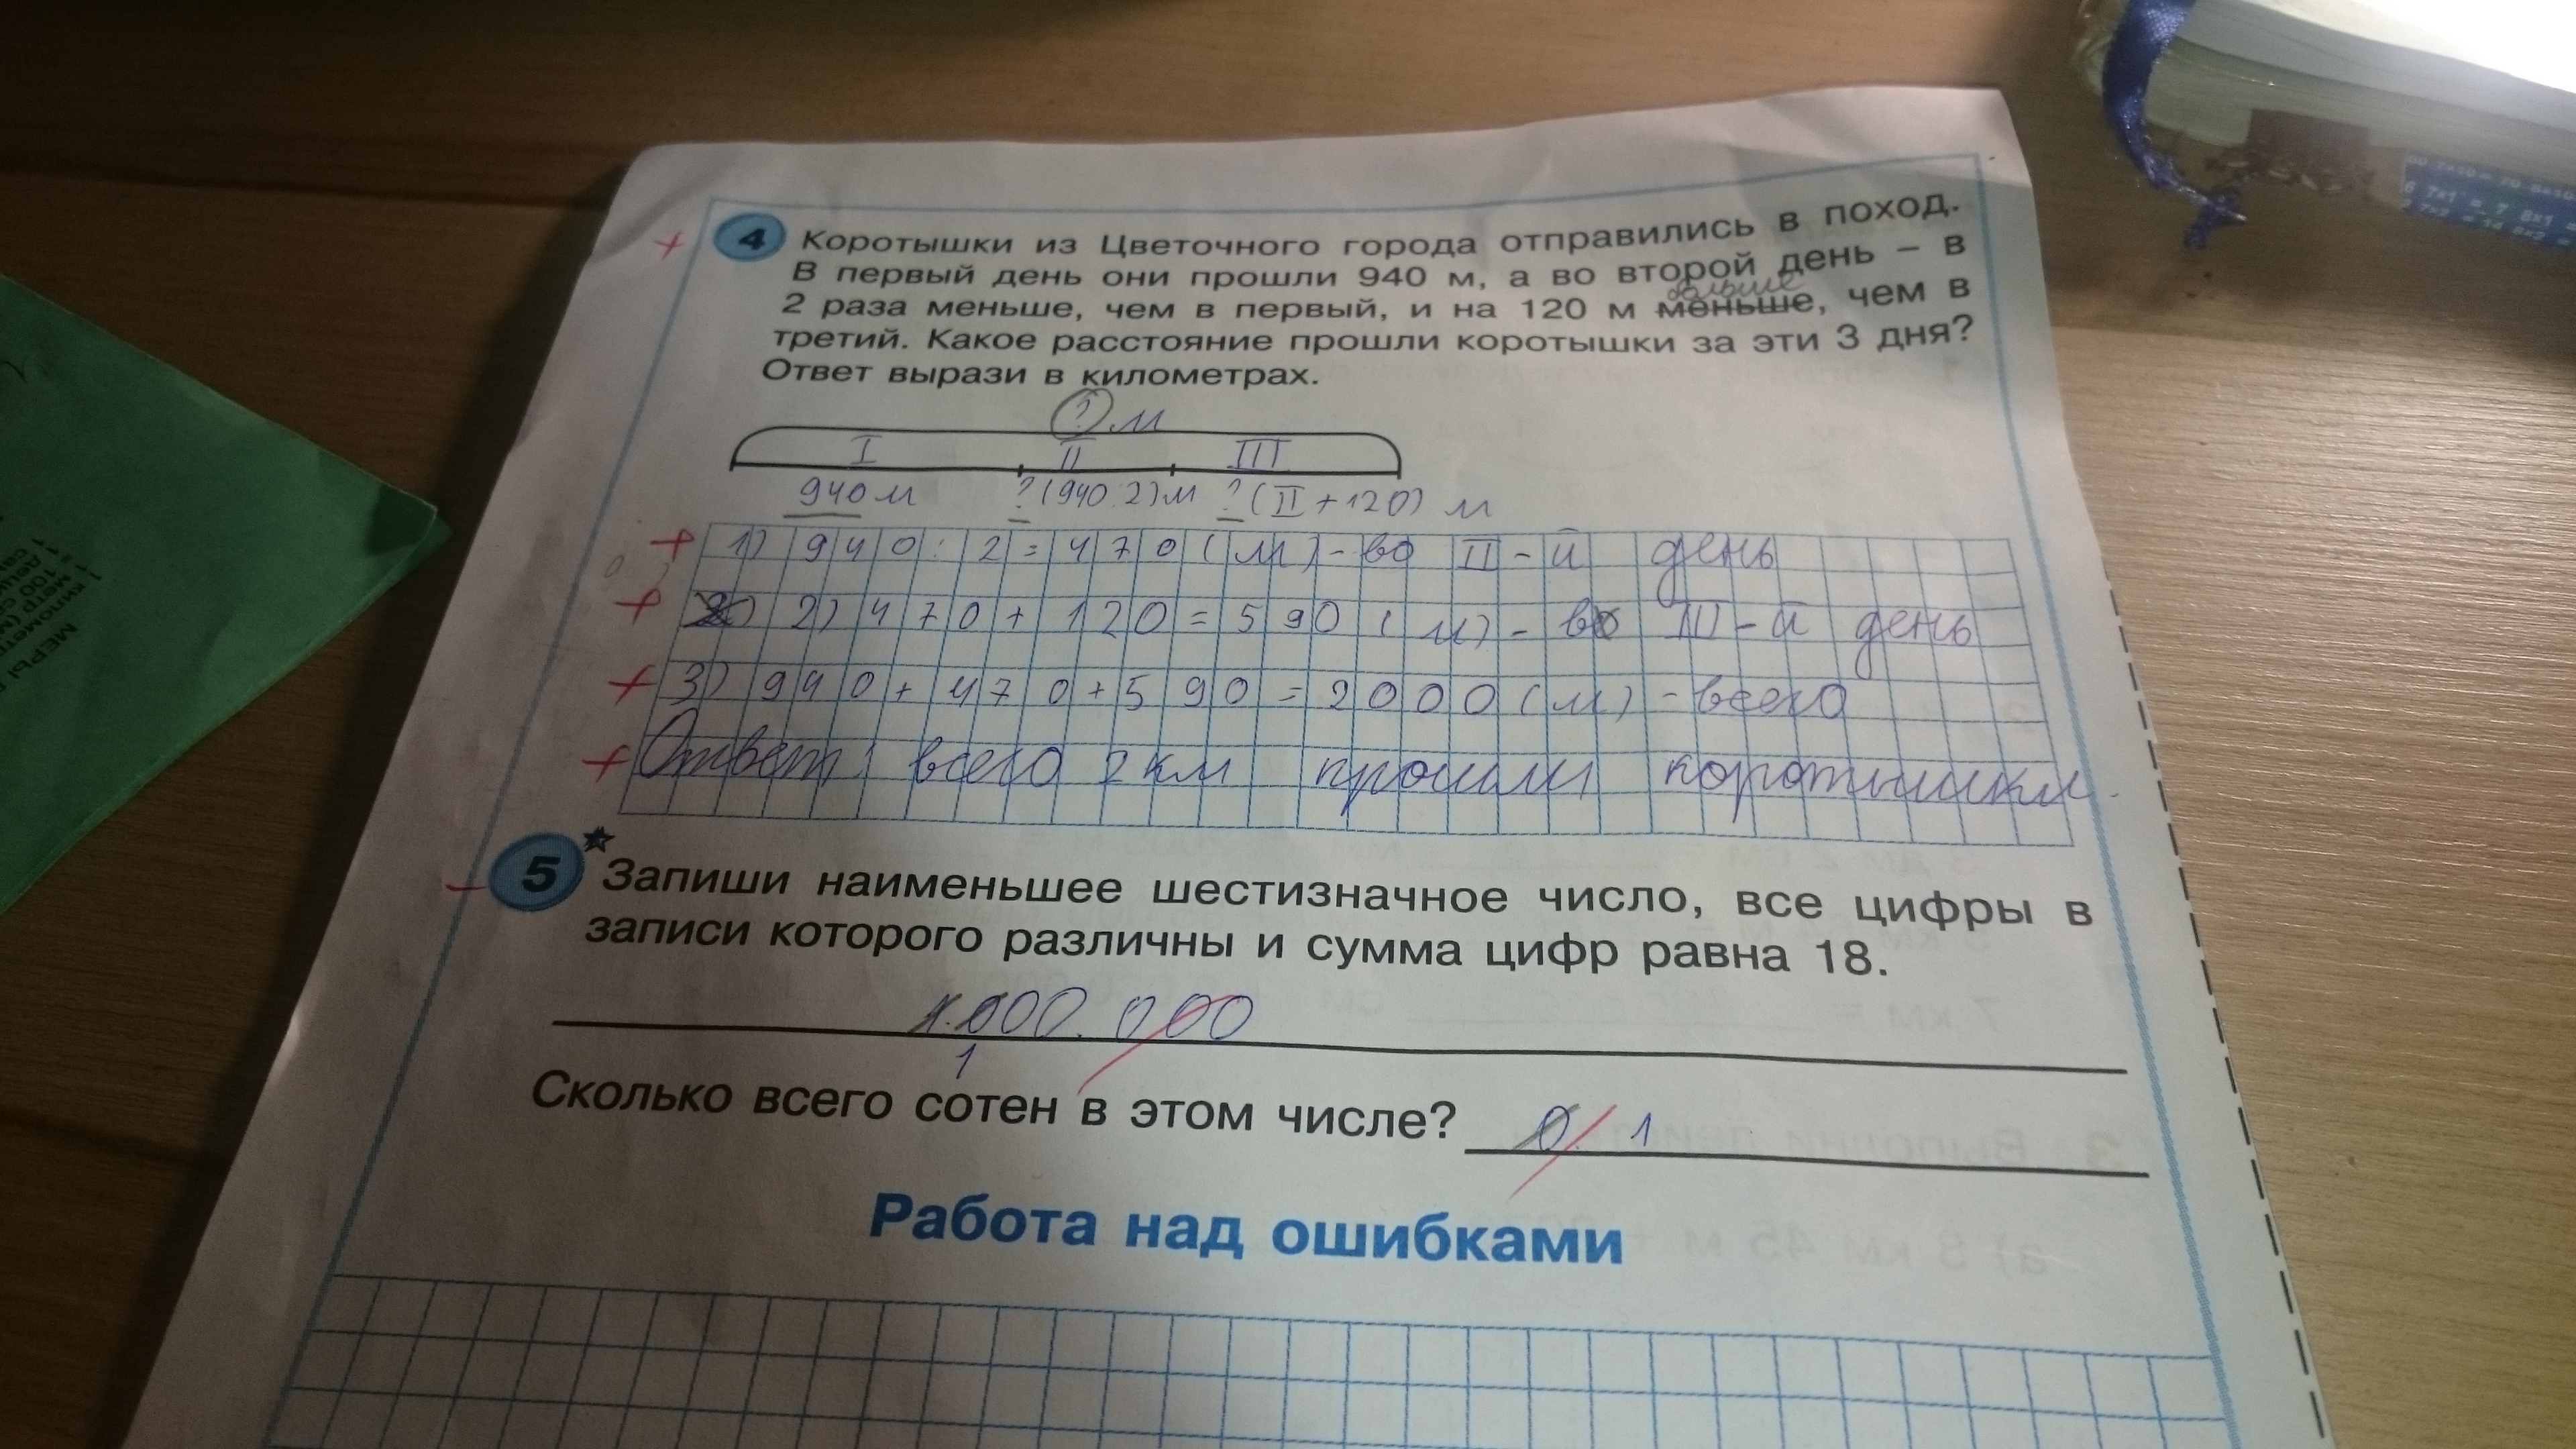 4 Коротышки из Цветочного города отправились в поход.
В первый день они прошли 940 м, а во второй день – в
больше
2 раза меньше, чем в первый, и на 120 м меньше, чем в
третий. Какое расстояние прошли коротышки за эти 3 дня?
Ответ вырази в километрах.
? м
I II III
940 м ? (940:2) м ? (II + 120) м
1) 940 : 2 = 470 (м) - во II - й день
2) 470 + 120 = 590 (м) - в III - й день
3) 940 + 470 + 590 = 2000 (м) - всего
Ответ: всего 2 км прошли коротышки.
5* Запиши наименьшее шестизначное число, все цифры в
записи которого различны и сумма цифр равна 18.
1.000.000
1
Сколько всего сотен в этом числе? 0 1
Работа над ошибками